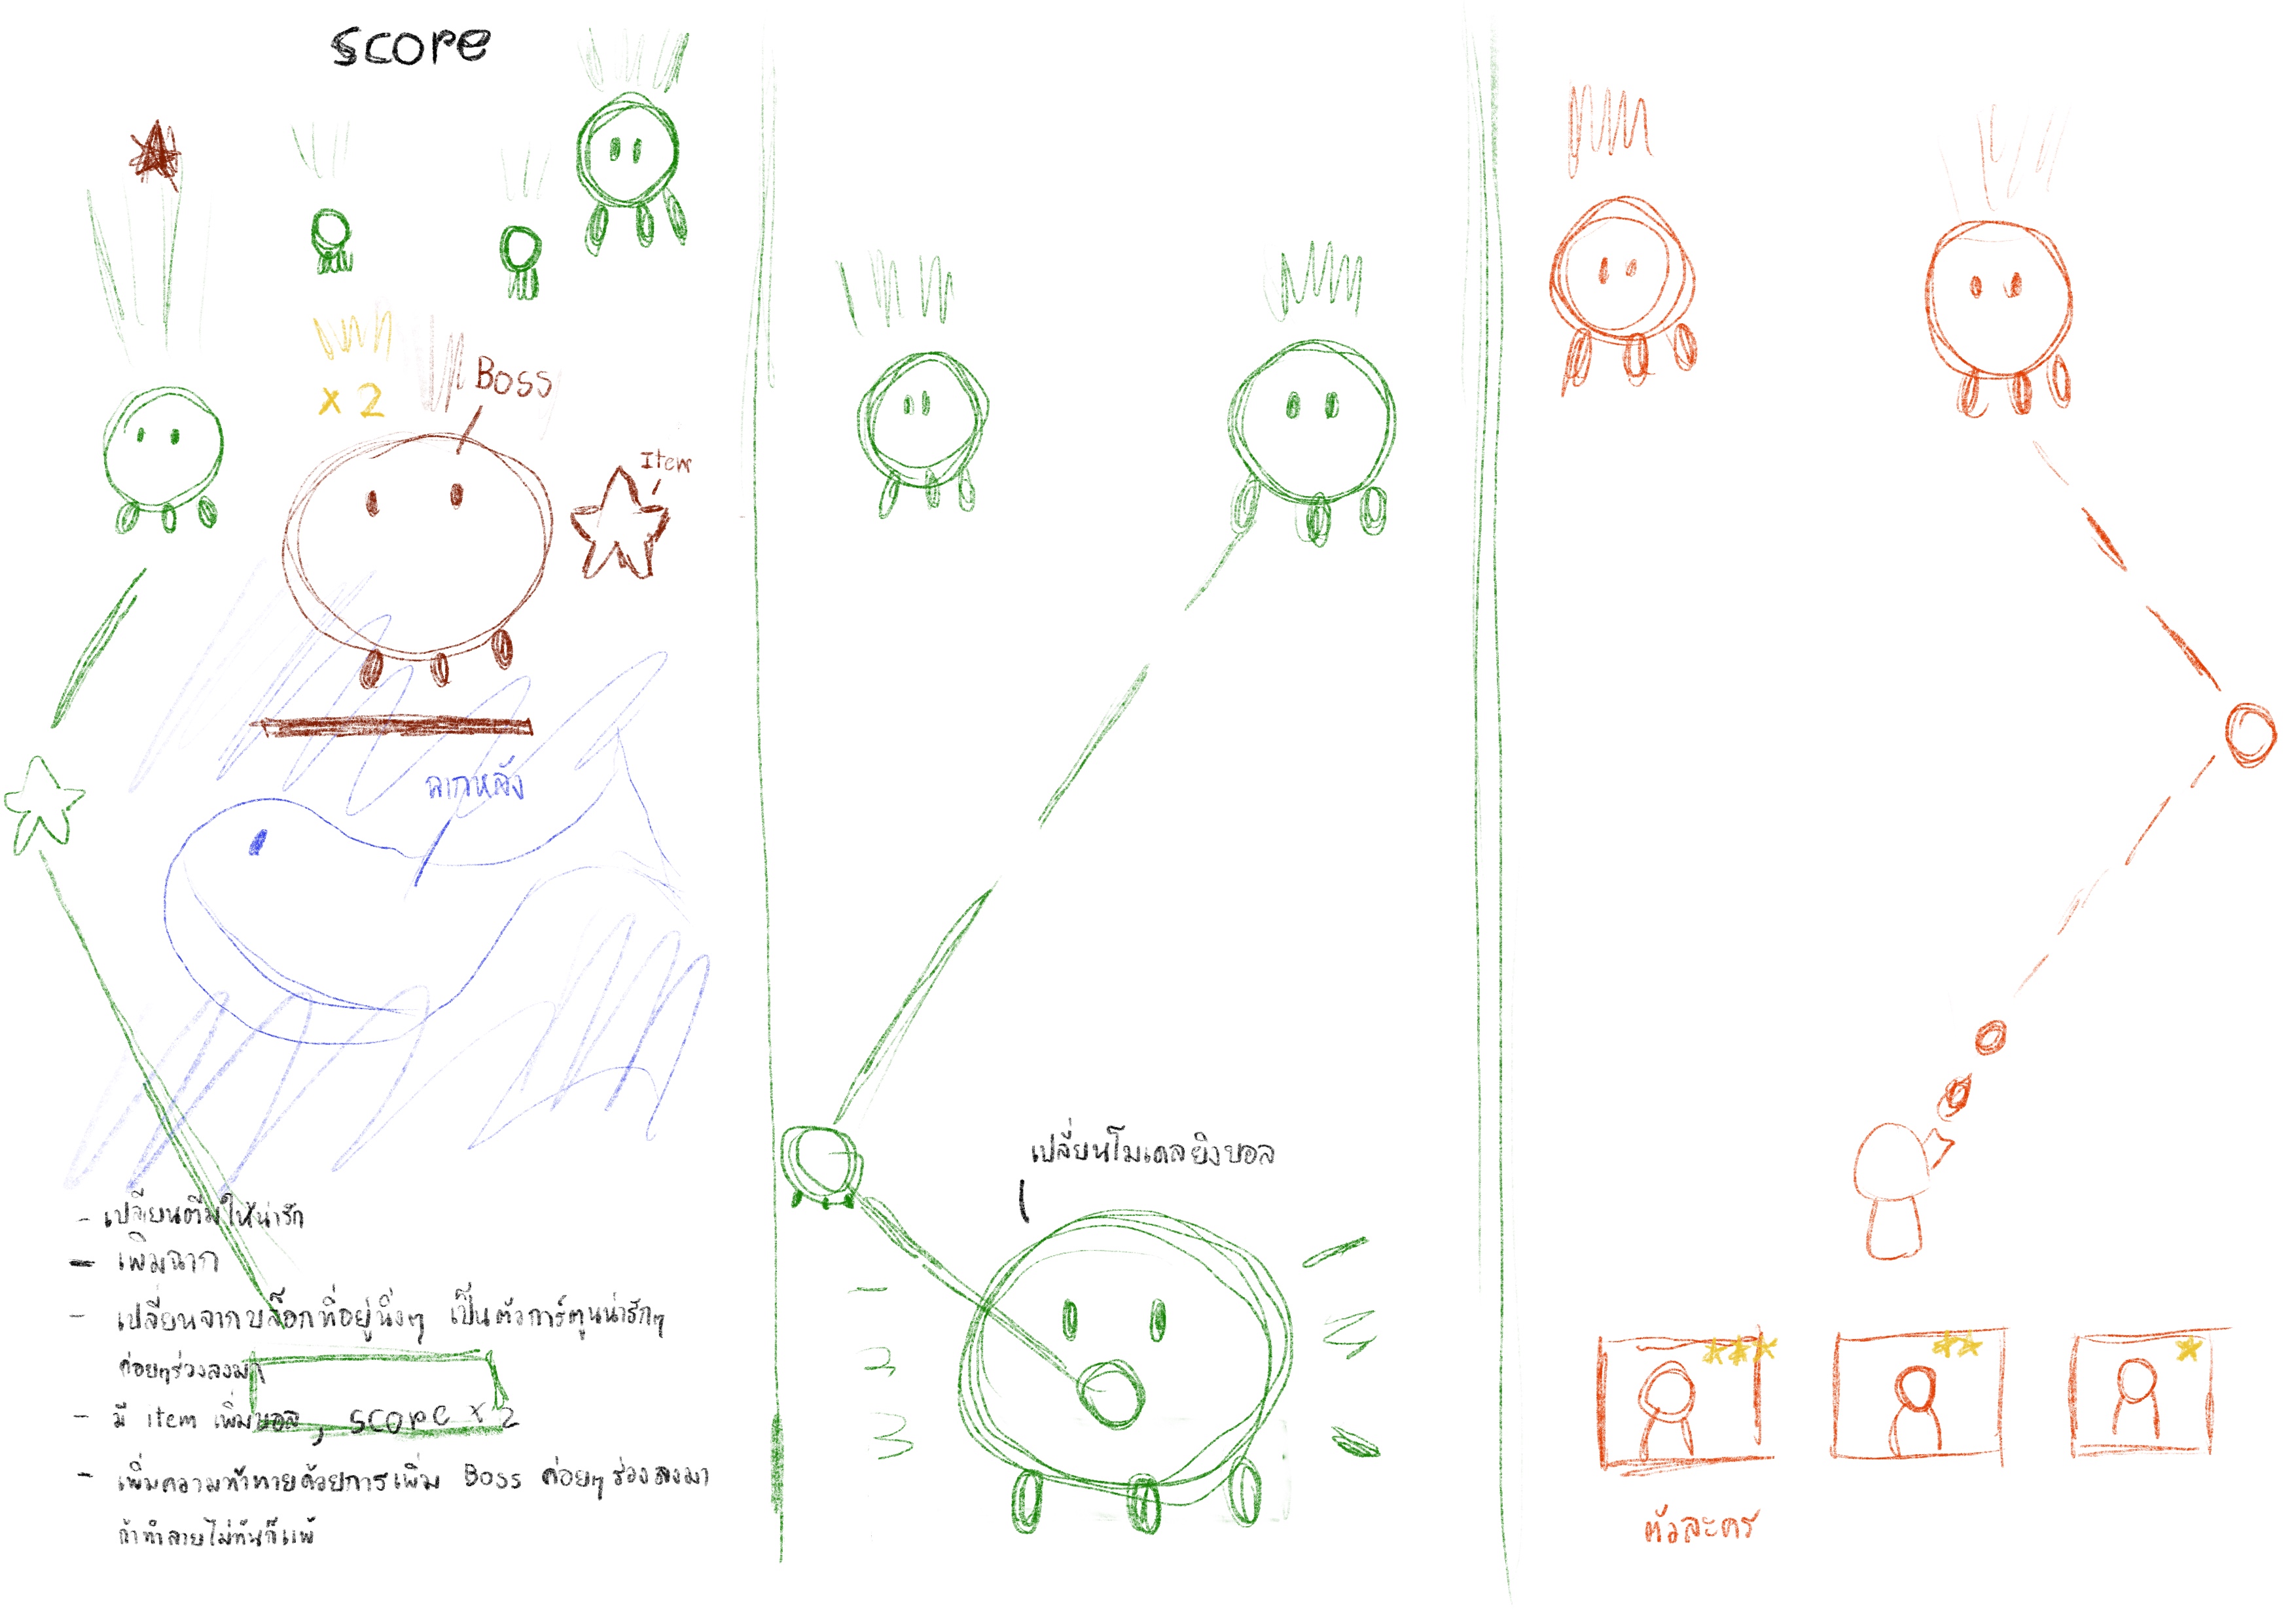 scope
Boss
x 2
Item
ฉากหลัง
- เปลี่ยนตีมให้น่ารัก
- เพิ่มฉาก
- เปลี่ยนจากบล็อกที่อยู่นิ่งๆ เป็นตัวการ์ตูนน่ารักๆ
ค่อยๆร่วงลงมา
- มี item เพิ่มบอล , scope x 2
- เพิ่มความท้าทายด้วยการเพิ่ม Boss ค่อยๆร่วงลงมา
ถ้าทำลายไม่ทันก็แพ้
เปลี่ยนโมเดลยิงบอล
ตัวละคร